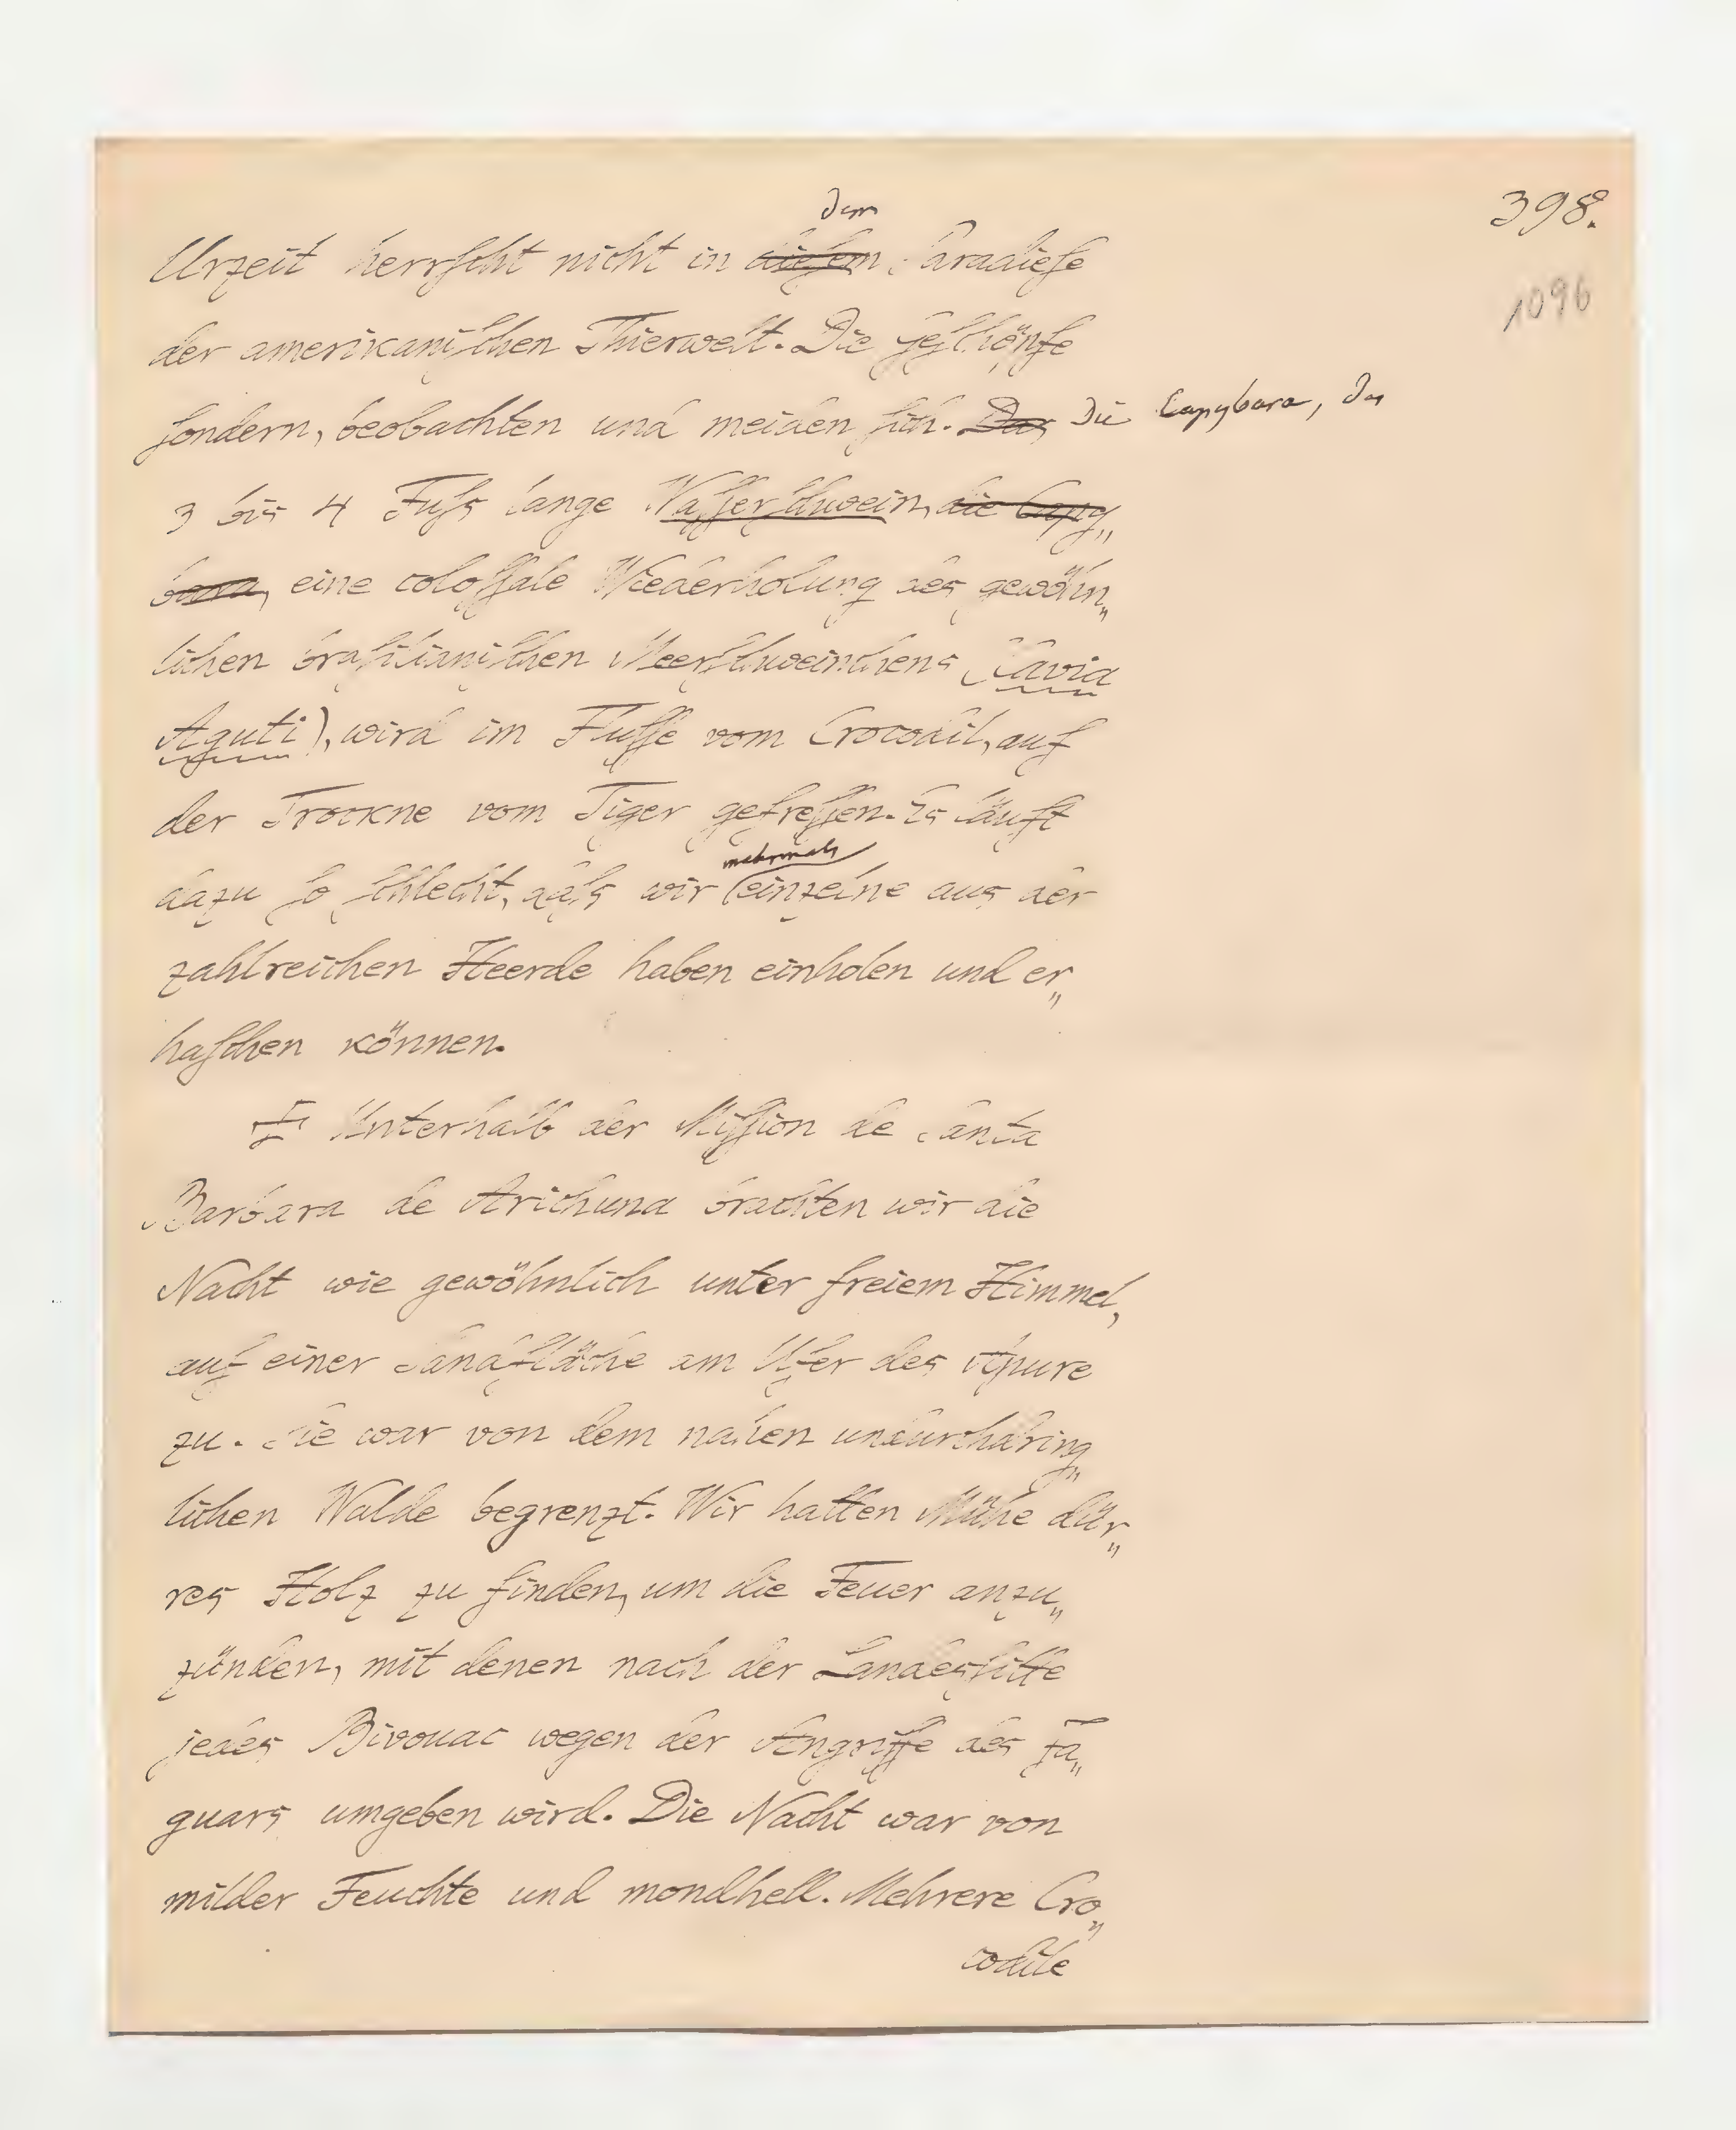 398.
1096
dem
Urzeit herrscht nicht in diesem Paradiese
der amerikanischen Thierwelt. Die Geschöpfe
sondern, beobachten und meiden sich. Das Die Capybara, das
3 bis 4 Fuſs lange Wasserschwein, die Capy„
bara, eine colossale Wiederholung des gewöhn„
lichen brasilianischen Meerschweinchens (Cavia
Aguti), wird im Flusse vom Crocodil, auf
der Trockne vom Tiger gefressen. Es läuft
mehrmals
dazu so schlecht, daſs wir einzelne aus der
zahlreichen Heerde haben einholen und er„
haschen können.
Unterhalb der Mission de Santa
Barbara de Arichuna brachten wir die
Nacht wie gewöhnlich unter freiem Himmel,
auf einer Sandfläche am Ufer des Apure
zu. Sie war von dem nahen undurchdring„
lichen Walde begrenzt. Wir hatten Mühe dür„
res Holz zu finden, um die Feuer anzu„
zünden, mit denen nach der Landessitte
jedes Bivouac wegen der Angriffe des Ja„
guars umgeben wird. Die Nacht war von
milder Feuchte und mondhell. Mehrere Cro„
codile